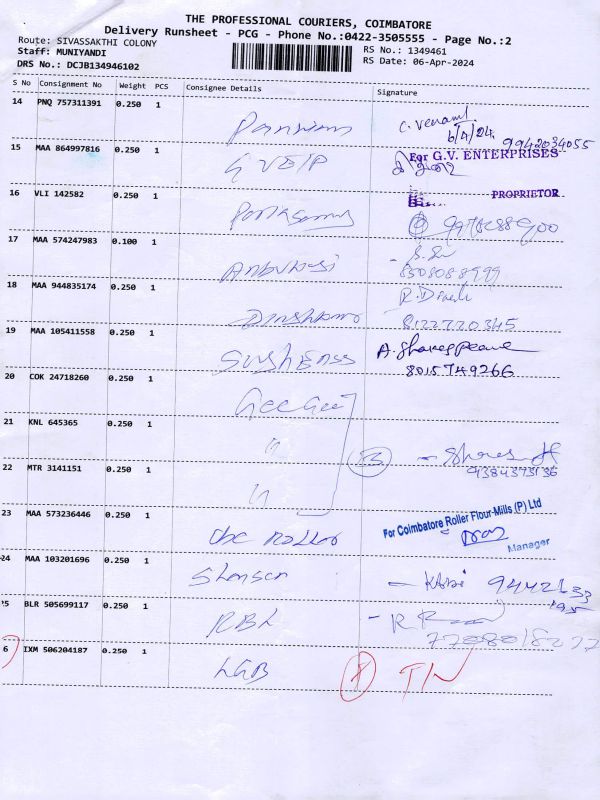 THE PROFESSIONAL COURIERS, COIMBATORE
Delivery Runsheet - PCG - Phone No.:0422-3505555 - Page No.:2
Route: SIVASSAKTHI COLONY
RS No.: 1349461
Staff: MUNIYANDI
RS Date: 06-Apr-2024
DRS No.: DCJB134946102
S No Consignment No Weight PCS Consignee Details Signature
14 PNQ 757311391 0.250 1
6/4/24 9942034055
15 MAA 864997816 0.250 1 For G.V. ENTERPRISES
16 VLI 142582 0.250 1 PROPRIETOR
17 MAA 574247983 0.100 1
8508088999
18 MAA 944835174 0.250 1
8122720345
19 MAA 105411558 0.250 1
8015749266
20 COK 24718260 0.250 1 GeeGee
21 KNL 645365 0.250 1 "
9384373136
22 MTR 3141151 0.250 1 "
23 MAA 573236446 0.250 1 Roller For Coimbatore Roller Flour-Mills (P) Ltd
Manager
24 MAA 103201696 0.250 1
25 BLR 505699117 0.250 1 RBL
7708018277
6 IXM 506204187 0.250 1 LGB